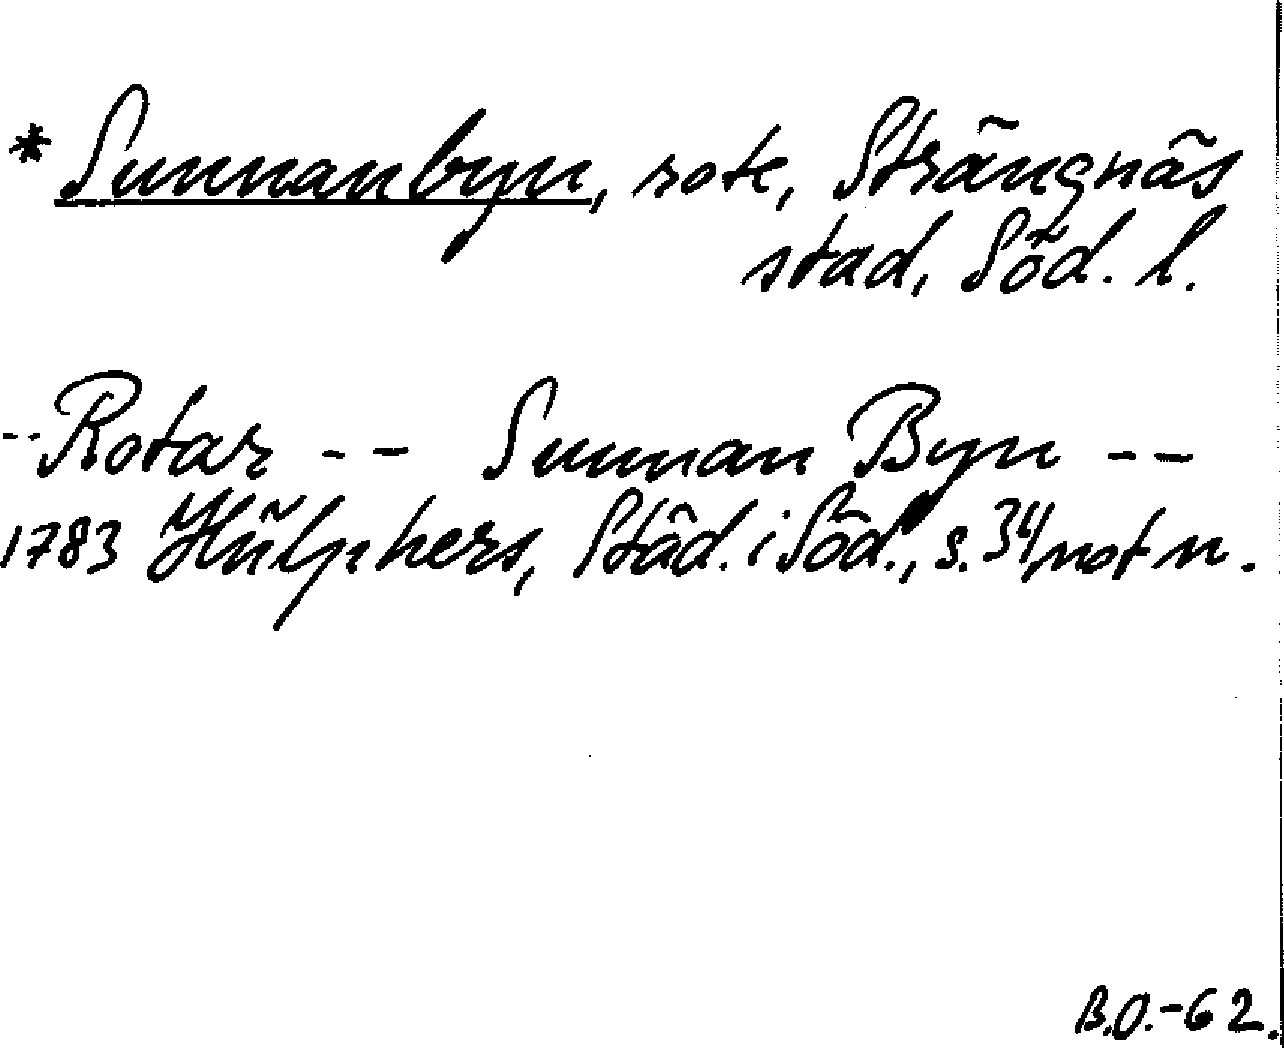 * Sunnanbyn, rote, Strängnäs
stad, Söd. l.
-- Rotar -- Sunnan Byn --
1783 Hülphers, Städ. i Söd., s. 34, not n.
B.O.-62.